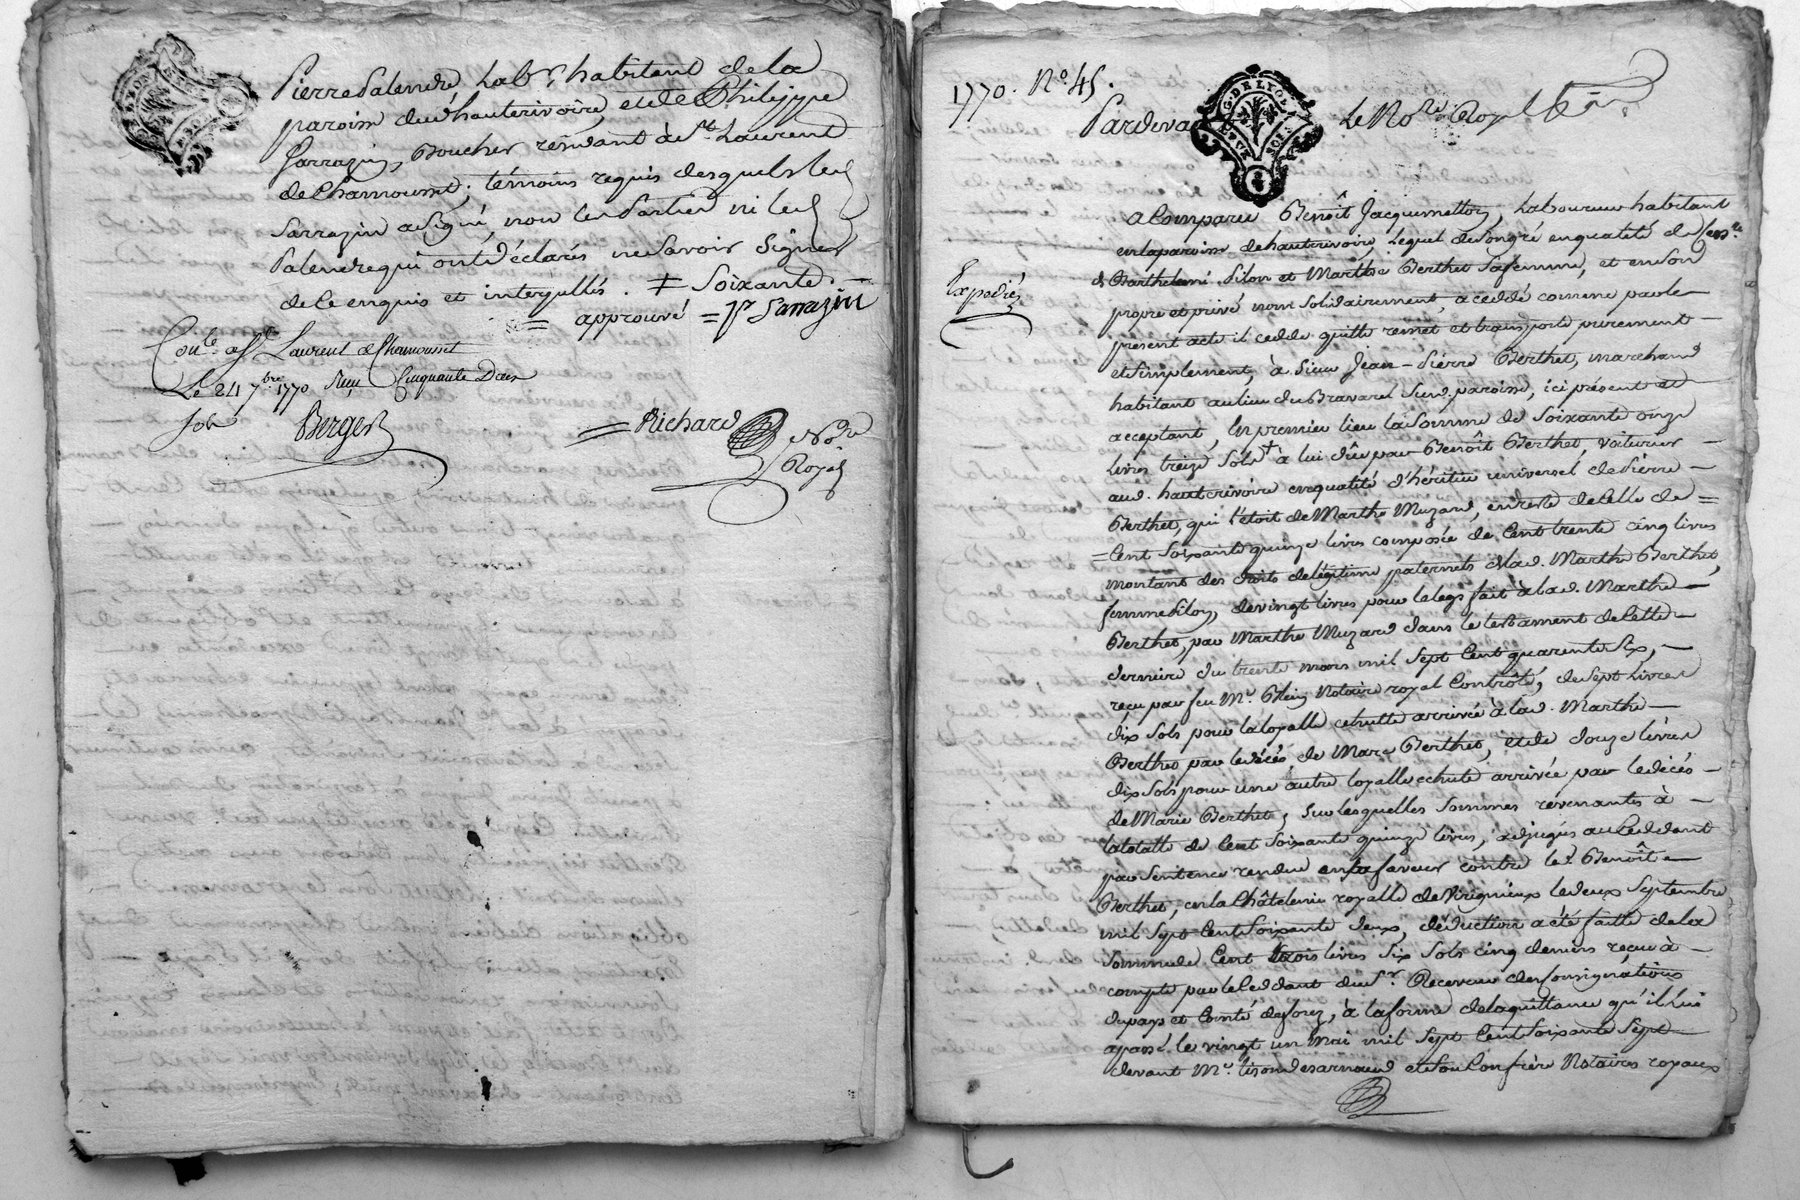 Pierre Palendre Labr. habitant de la
paroisse dud. hauterivoire, et de Philippe
Sarrazin, Boucher résidant à St. Laurent
de Chamousset, témoins requis desquels led.
Sarrazin a signé, non les Parties ni led.
Palendre qui ont déclarés ne savoir signer
de ce enquis et interpellés. ≠ Soixante.
approuvé = P. Sarrazin
Conlé. à St. Laurent de Chamousset
Le 24 7bre. 1770 Reçu Cinquante Deux
sols Berger
= Richard Nore
Royal
1770. No. 45.
Pardevant Le Nore. Royal
G. DE LYON
a Comparu Benoît Jacquemetton, Laboureur habitant
en la paroisse de hauterivoire, Lequel de son gré en qualité de Cessre.
de Barthelemi Pilon et Marthe Berthet sa femme, et en son
Expedié
propre et privé nom solidairement, a cedé comme par le
present acte il cedde quitte remet et transporte purement
et simplement, à Sieur Jean-Pierre Berthet, marchand
habitant au lieu du Bravard susd. paroisse, ici présent et
acceptant, En premier lieu la Somme de Soixante onze
Livres treize Sols à lui dûe par Benoît Berthet, voiturier
aud. hauterivoire en qualité d'héritier universel de Pierre
Berthet, qui l'étoit de Marthe Muzard, en reste de celle de =
= Cent Soixante quinze livres composée de Cent trente cinq livres
montant des droits de légitime paternels de lad. Marthe Berthet,
femme Pilon, de vingt livres pour le legs fait à lad. Marthe
Berthet, par Marthe Muzard dans le testament de cette
derniere du trente mars mil Sept Cent quarente Six,
reçu par feu Me. Notaire royal Controlé, de Sept Livres
dix Sols pour la loyalle echutte arrivée à lad. Marthe
Berthet par le décés de Marc Berthet, et de douze livres
dix Sols pour une autre loyalle echute arrivée par le décés
de Marie Berthet, Sur lesquelles Sommes révenantes à
la totalle de Cent Soixante quinze livres, adjugés au Ceddant
par Sentence rendue en sa faveur contre led. Benoît
Berthet, en la Châtelenie royalle de Virignieux le deux Septembre
mil Sept Cent Soixante deux, déduction a été faitte de la
Somme de Cent trois livres Six Sols cinq deniers reçu à
compte par le Ceddant du Sr. Receveur des Consignations
du pays et Comté de forez, à la forme de la quittance qu'il lui
a passé le vingt un Mai mil Sept Cent Soixante Sept
devant Me. et Son Confrère Notaires royaux